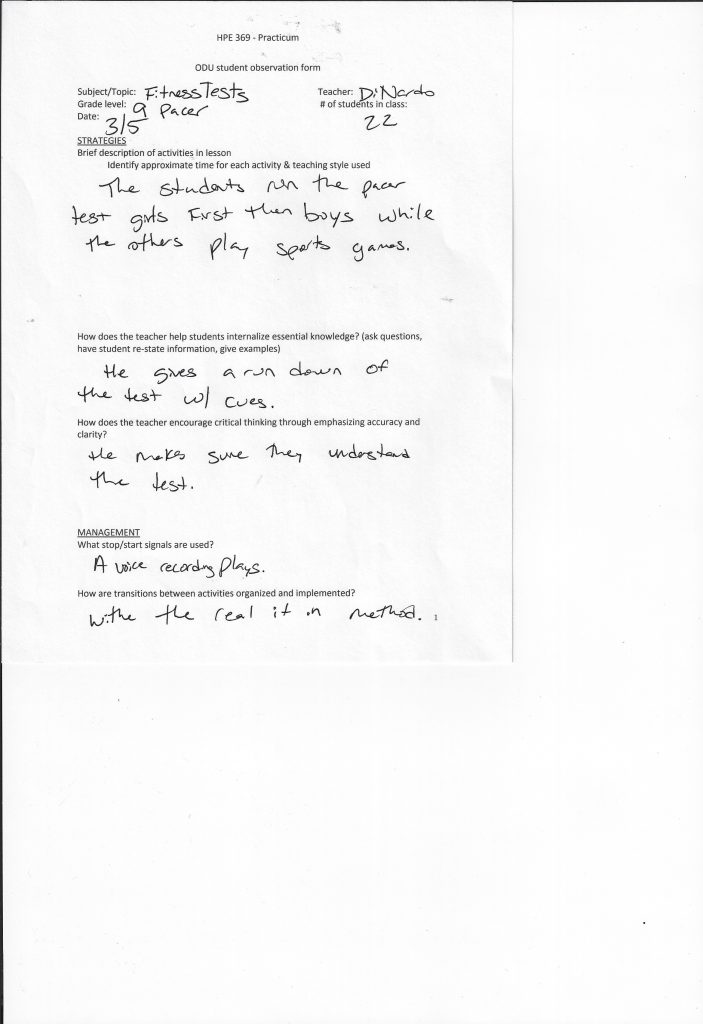 HPE 369 - Practicum
ODU student observation form
Subject/Topic: Fitness Tests
Teacher: DiNardo
Grade level: 9 Pacer
# of students in class:
Date: 3/5
22
STRATEGIES
Brief description of activities in lesson
Identify approximate time for each activity & teaching style used
The students run the pacer
test girls First then boys while
the others play sports games.
How does the teacher help students internalize essential knowledge? (ask questions,
have student re-state information, give examples)
He gives a run down of
the test w/ cues.
How does the teacher encourage critical thinking through emphasizing accuracy and
clarity?
He makes sure they understand
the test.
MANAGEMENT
What stop/start signals are used?
A voice recording plays.
How are transitions between activities organized and implemented?
the real it in method.
1